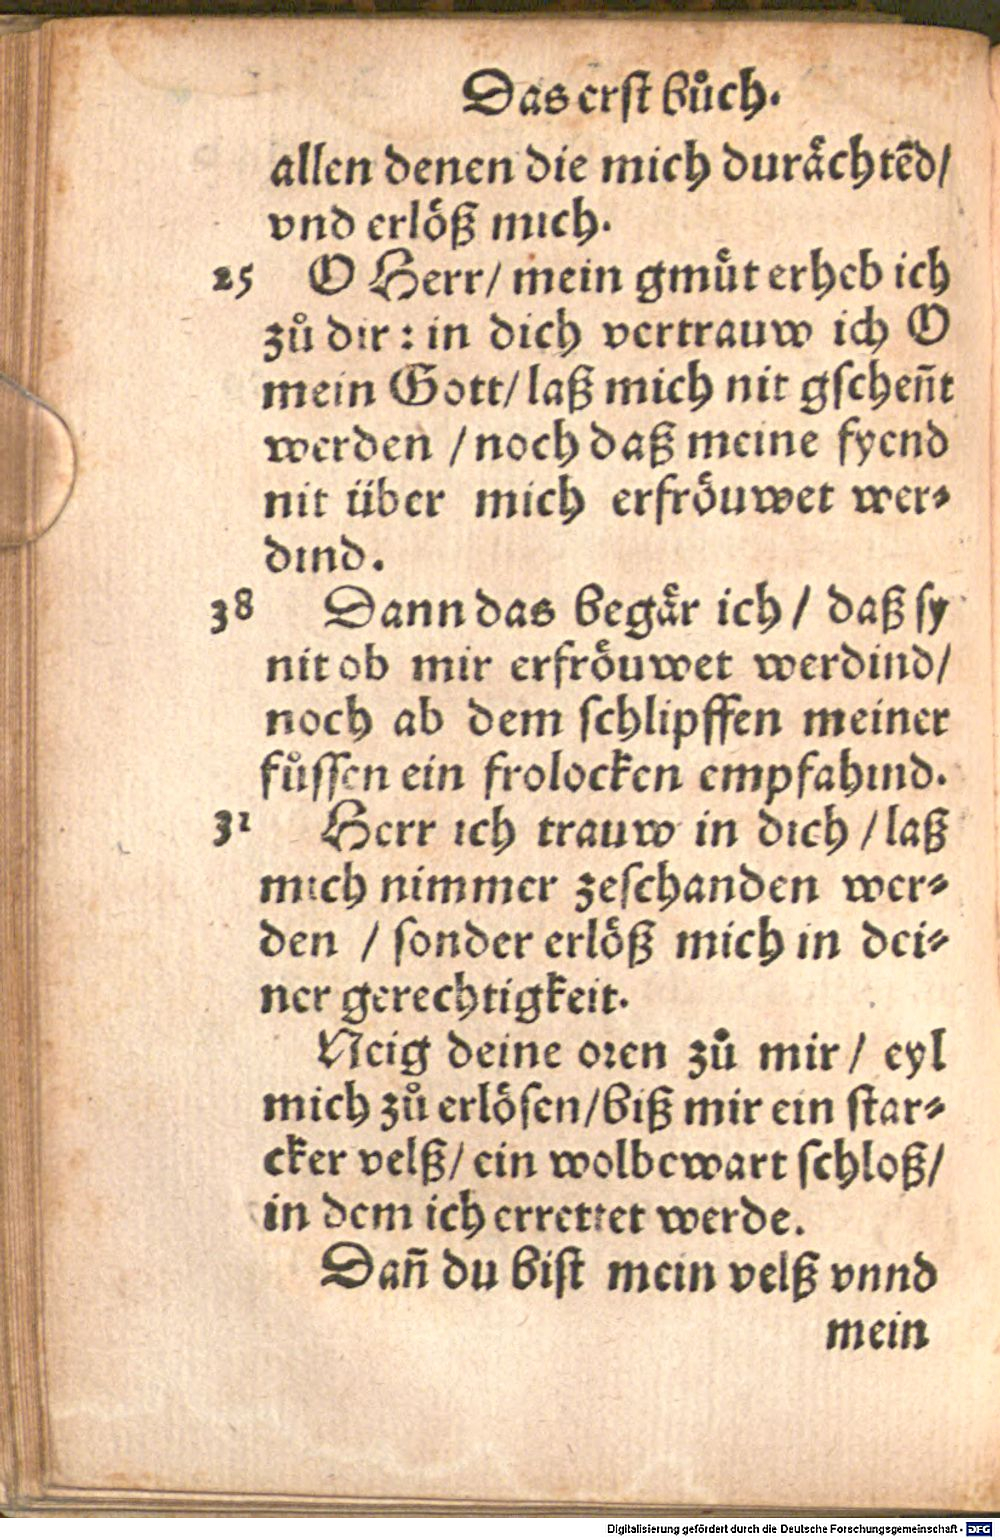 Das erst bůch.
allen denen die mich durächtēd/
vnd erlöß mich.
25 O Herr/ mein gmüt erheb ich
zů dir: in dich vertrauw ich O
mein Gott/ laß mich nit gscheñt
werden / noch daß meine fyend
nit über mich erfröuwet wer⸗
dind.
38 Dann das begär ich / daß sy
nit ob mir erfröuwet werdind/
noch ab dem schlipffen meiner
fůssen ein frolocken empfahind.
31 Herr ich trauw in dich / laß
mich nimmer zeschanden wer⸗
den / sonder erlöß mich in dei⸗
ner gerechtigkeit.
Neig deine oren zů mir / eyl
mich zů erlösen/ biß mir ein star⸗
cker velß/ ein wolbewart schloß/
in dem ich errettet werde.
Dañ du bist mein velß vnnd
mein
Digitalisierung gefördert durch die Deutsche Forschungsgemeinschaft - DFG